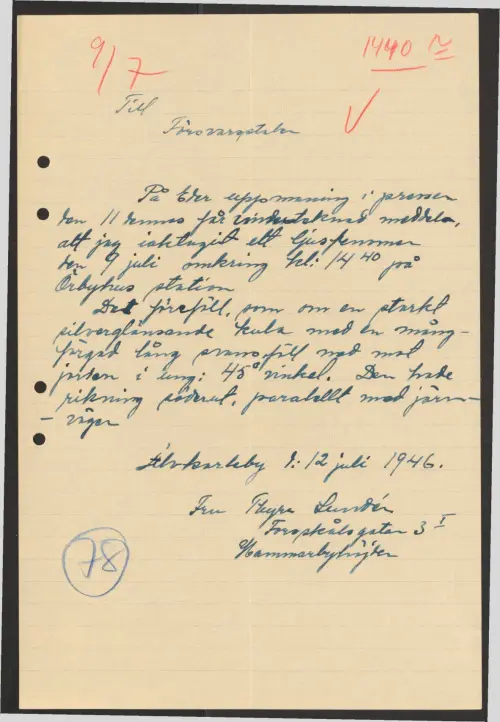 9/7
1440 N
Till
Försvarsstaben
På Eder uppmaning i pressen
den 11 dennes får undertecknad meddela,
att jag iakttagit ett ljusfenomen
den 9 juli omkring kl: 14 40 på
Örbyhus station
Det föreföll, som om en starkt
silverglänsande kula med en mång-
färgad lång svans föll ned mot
jorden i ung: 45° vinkel. Den hade
rikning söderut, paralellt med järn-
- vägen
Älvkarleby d: 12 juli 1946.
Fru Thyra Lundén
3 I
Hammarbyhöjden
78